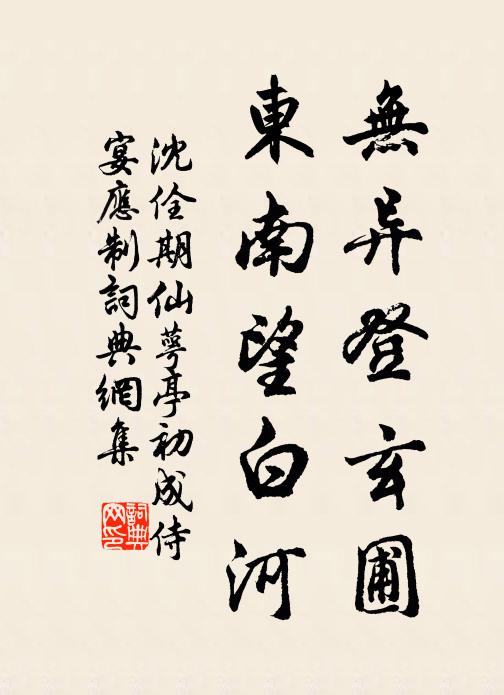 無异登玄圃
東南望白河
沈佺期仙萼亭初成侍
宴應制詞典網集
詞典
网印